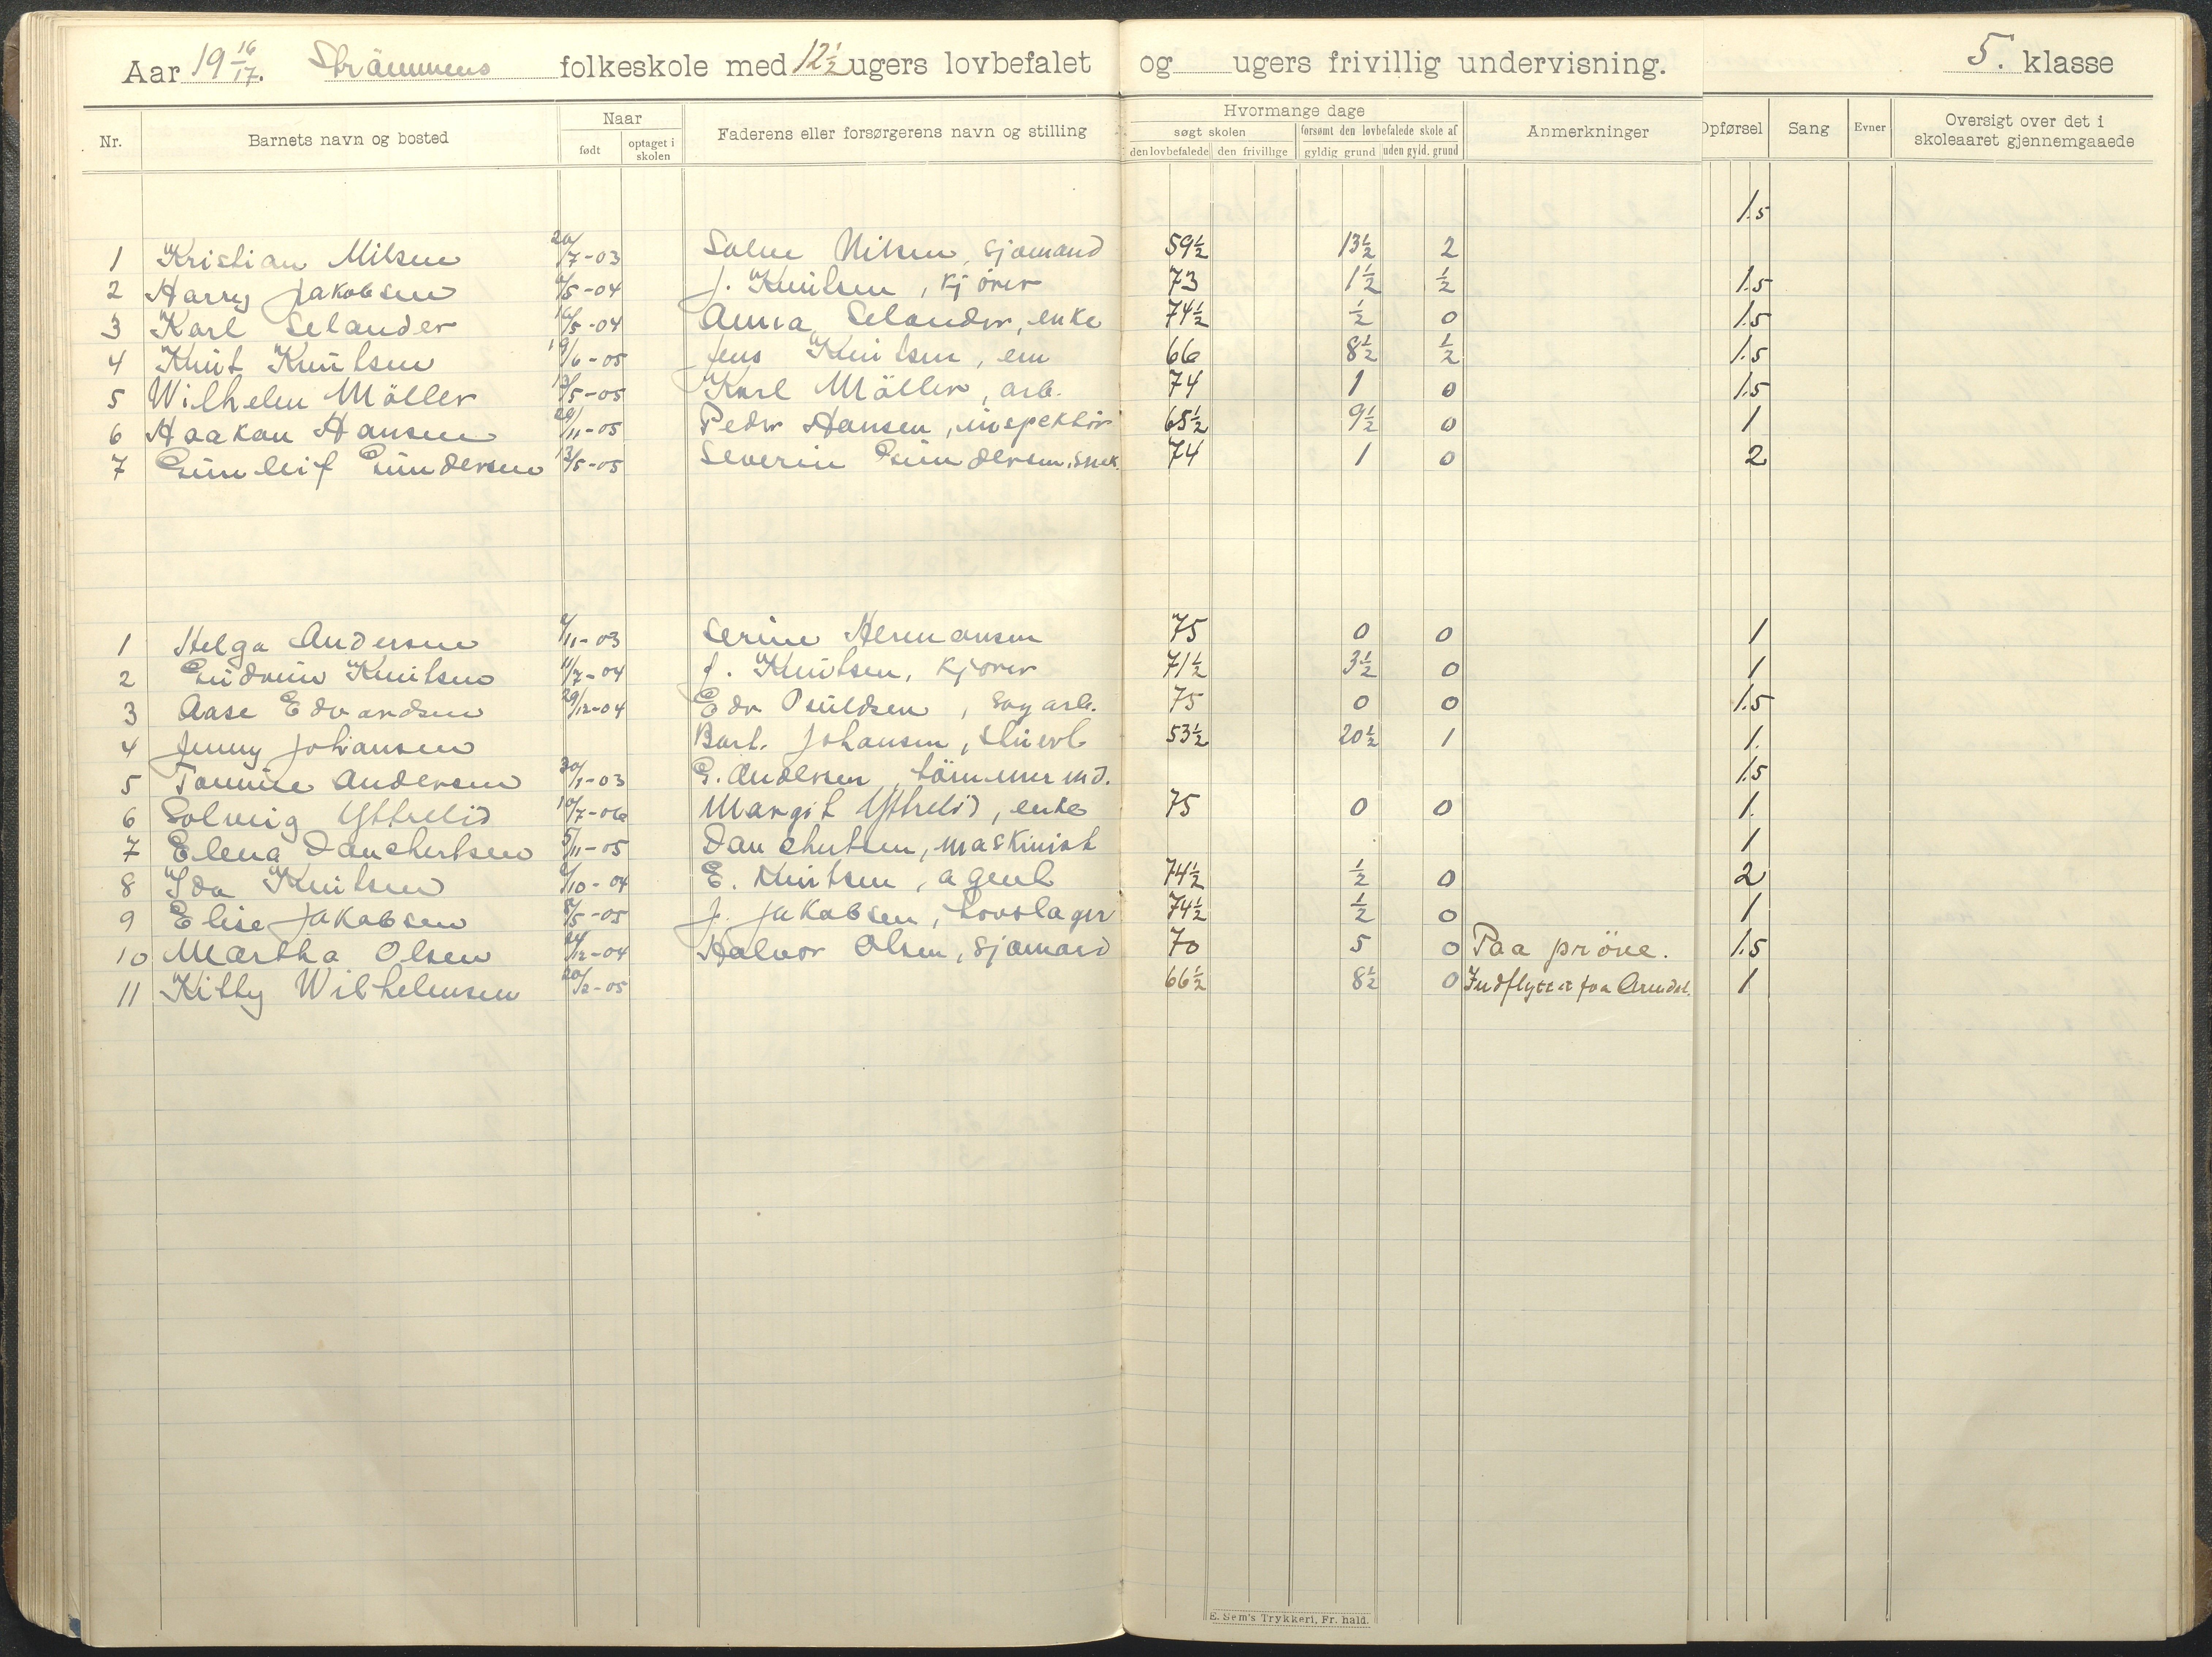 Aar 19 16/17. Strømmens folkeskole med 12½ ugers lovbefalet og ugers frivillig undervisning. 5. klasse
Nr. Barnets navn og bosted Naar født optaget i skolen Faderens eller forsørgerens navn og stilling Hvormange dage søgt skolen den lovbefalede den frivillige forsømt den løvbefalede skole af gyldig grund uden gyld. grund Anmerkninger Opførsel Sang Evner Oversigt over det i skoleaaret gjennemgaaede
1.5
1 Kristian Nilsen 20/7-03 Salve Nilsen, sjømand 59½ 13½ 2
2 Harry Jakobsen /5-04 J. Knutsen, kjører 73 1½ ½ 1.5
3 Karl Selander 16/5-04 Anna Selander, enke 74½ ½ 0 1.5
4 Knut Knutsen 19/6-05 Jens Knutsen, em 66 8½ ½ 1.5
5 Wilhelm Möller 13/5-05 Karl Möller, arb. 74 1 0 1.5
6 Haakon Hansen 29/11-05 Peder Hansen, inspektör 65½ 9½ 0 1
7 Gunleif Gundersen 13/5-05 Severin Gundersen, snek. 74 1 0 2
1 Helga Andersen /11-03 Serine Hermansen 75 0 0 1
2 Gudrun Knutsen 11/7-04 J. Knutsen, kjører 71½ 3½ 0 1
3 Aase Edvardsen 29/12-04 Edv , sagarb. 75 0 0 1.5
4 Jenny Johansen Bart. Johansen, 53½ 20½ 1 1.
5 Tomine Andersen 30/1-03 G. Andersen, tömmermd. 1.5
6 Solveig Yttrelid 10/7-06 Margit Yttrelid, enke 75 0 0 1.
7 Elena Danchertsen 5/11-05 Danchertsen, maskinist 1
8 Ida Knutsen /10-04 E. Knutsen, agent 74½ ½ 0 2
9 Elise Jakobsen 8/5-05 J. Jakobsen, hovslager 74½ ½ 0 1
10 Martha Olsen 24/12-04 Halvor Olsen, sjømand 70 5 0 Paa pröve. 1.5
11 Kitty Wilhelmsen 20/2-05 66½ 8½ 0 Indflyttet fra Arendal. 1
E. Sem's Trykkeri, Fr. hald.